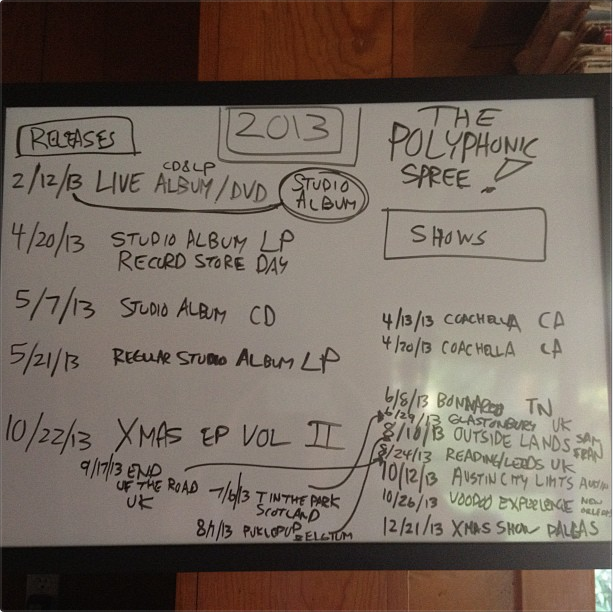 2013
THE
POLYPHONIC
SPREE!
RELEASES
CD&LP
2/12/13 LIVE ALBUM/DVD
STUDIO
ALBUM
4/20/13 STUDIO ALBUM LP
RECORD STORE DAY
5/7/13 STUDIO ALBUM CD
5/21/13 REGULAR STUDIO ALBUM LP
10/22/13 XMAS EP VOL II
9/17/13 END
OF THE ROAD
UK
7/6/13 T IN THE PARK
SCOTLAND
SHOWS
4/13/13 COACHELLA CA
4/20/13 COACHELLA CA
6/8/13 BONNAROO TN
6/29/13 GLASTONBURY UK
8/10/13 OUTSIDE LANDS SAN
FRAN
8/24/13 READING/LEEDS UK
10/12/13 AUSTIN CITY LIMITS AUSTIN
10/26/13 VOODOO EXPERIENCE NEW
ORLEANS
12/21/13 XMAS SHOW DALLAS